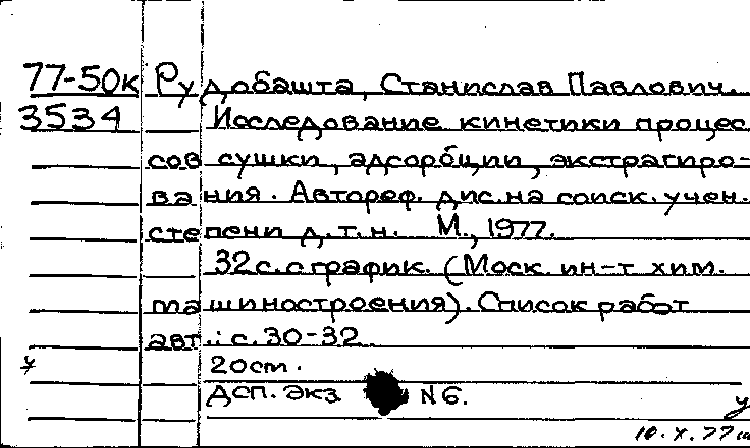 77-50к Рудобашта, Станислав Павлович.
3534 Исследование кинетики процес
сов сушки, адсорбции, экстрагиро-
вания. Автореф. дис. на соиск. учен.
степени д.т.н. М., 1977.
32 с. с график. (Моск. ин-т хим.
машиностроения). Список работ
авт.: с. 30-32.
20 cm.
ДСП. Экз N6.
у
10.X.77